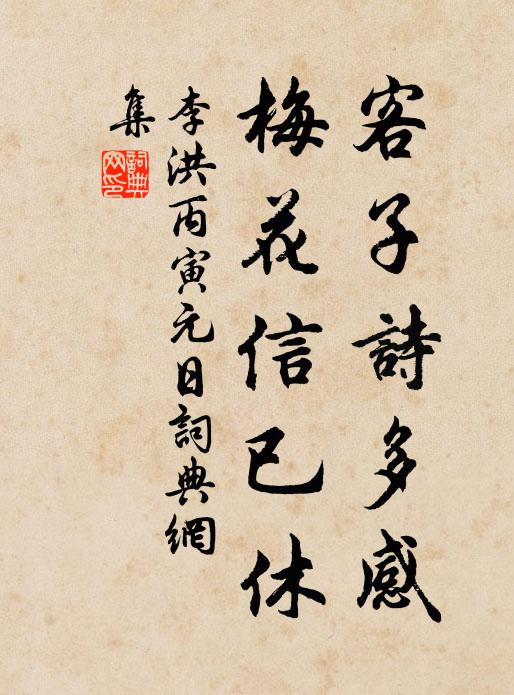 客子詩多感
梅花信已休
李洪丙寅元日詞典網
集
詞典網印